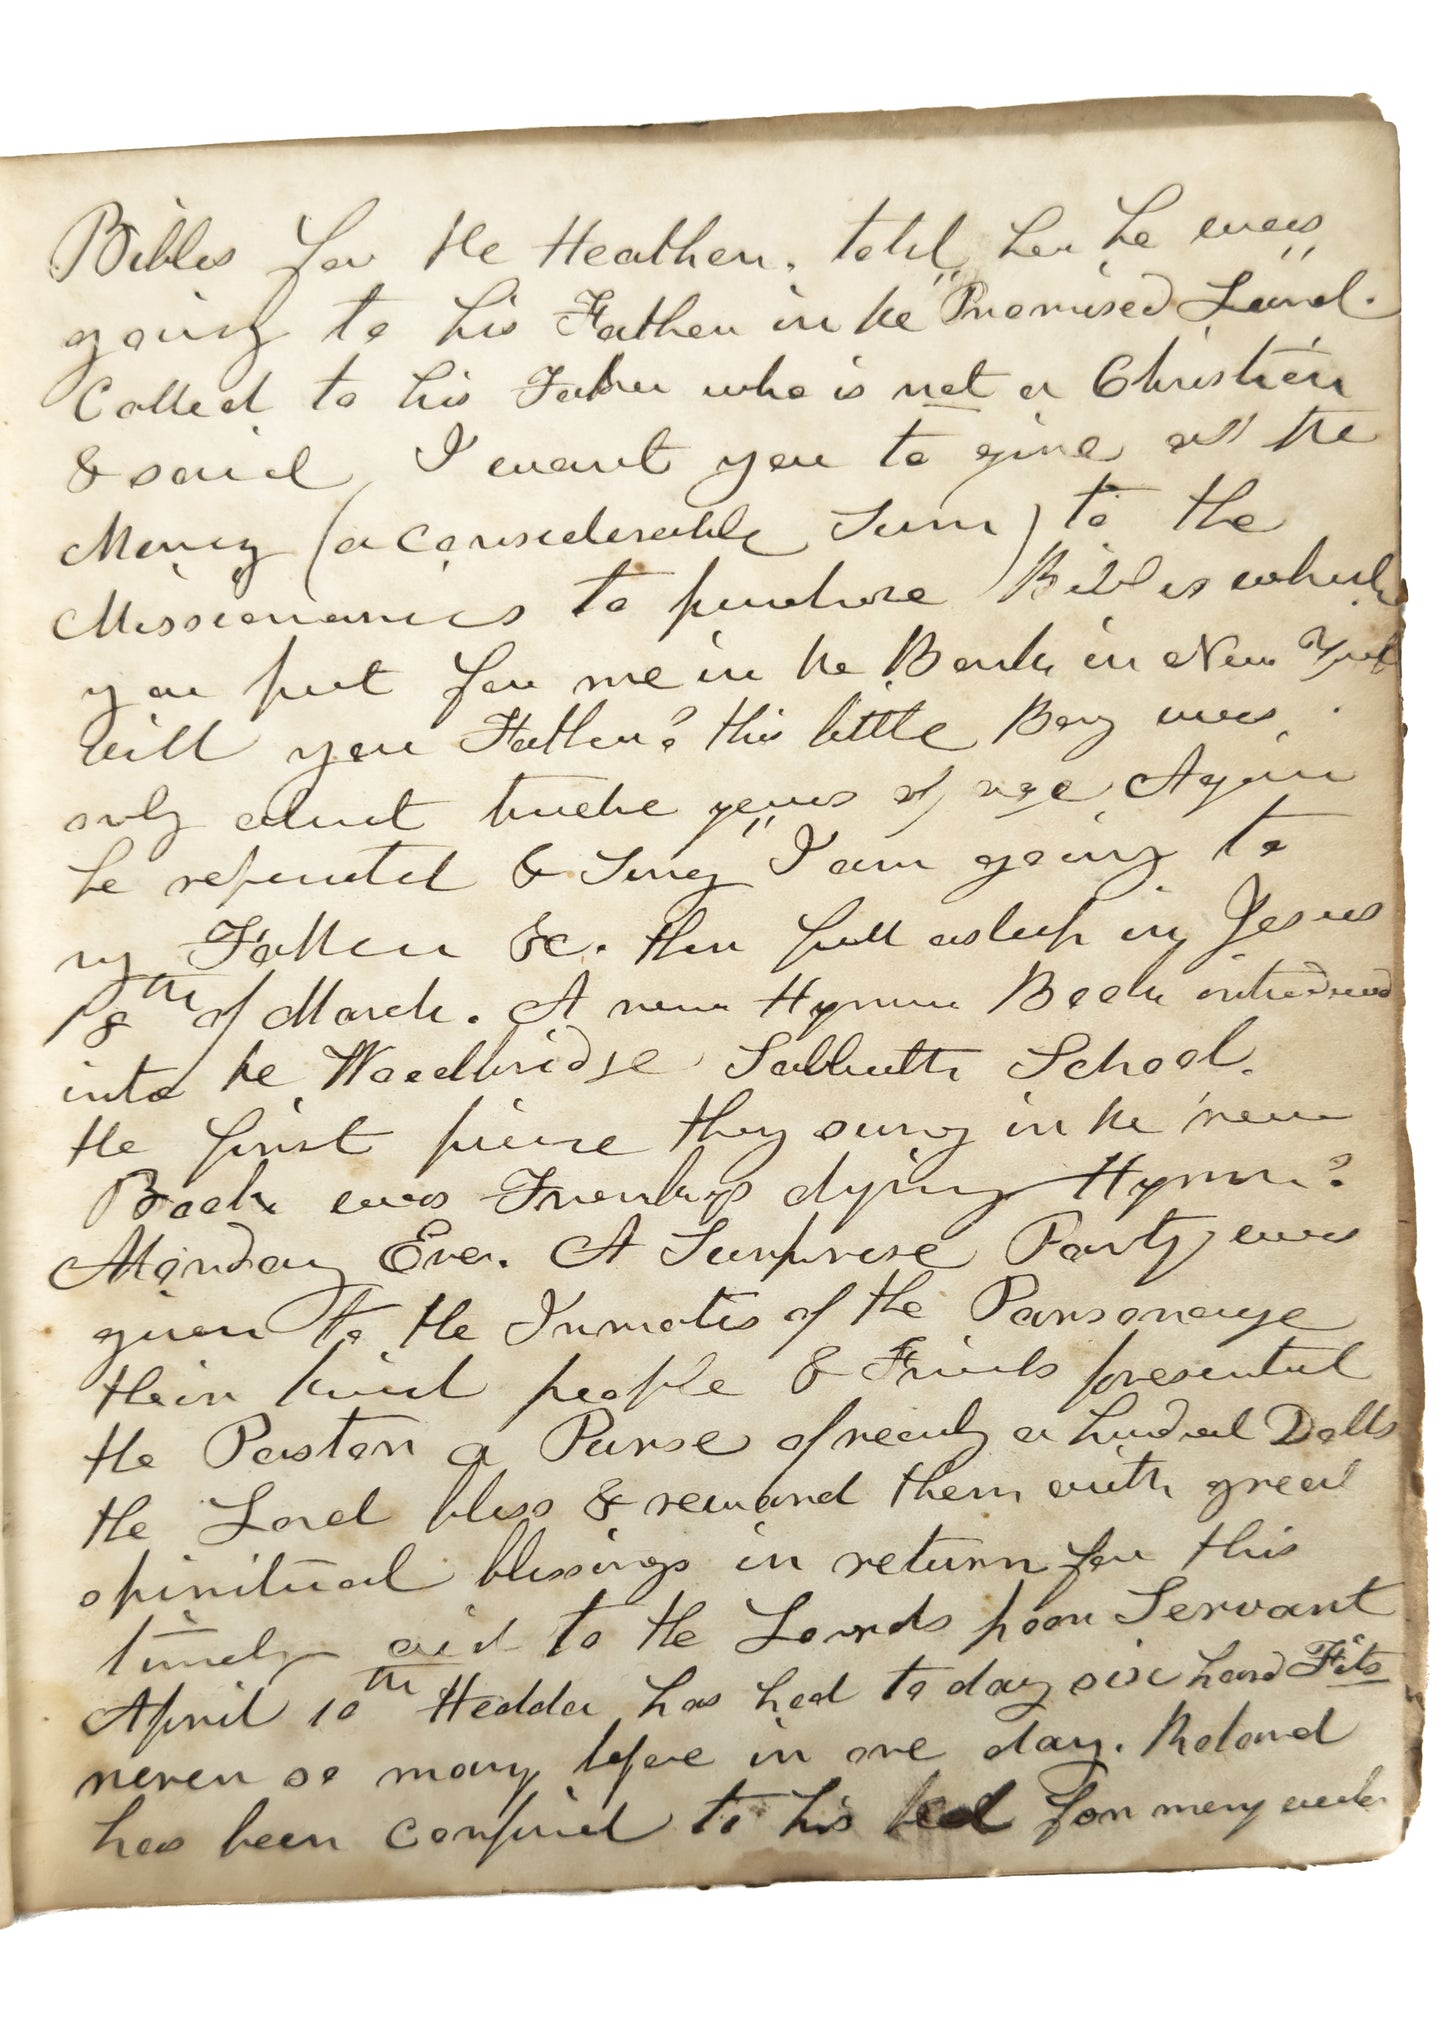 Bibles for the Heathen. told her he was
going to his Father in the "Promised Land."
Called to his Father who is not a Christian
& said I want you to give all the
Money (a considerable Sum) to the
Missionaries to purchase Bibles which
you put for me in the Bank in New York
will you Father? this little Boy was
only about twelve years of age Again
he repeated & Sung "I am going to
my Father &c. then fell asleep in Jesus
8th of March. A new Hymn Book introduced
into the Woodbridge Sabbath School.
the first piece they sung in the new
Book was dying Hymn?
Monday Eve. A Surprise Party was
given to the Inmates of the Parsonage
their kind people & Friends presented
the Pastor a Purse of nearly a hundred Dolls
the Lord bless & reward them with great
spiritual blessings in return for this
timely aid to the Lords poor Servant
April 10th Hedda has had to day six hard Fits
never so many before in one day. Roland
has been confined to his bed for many weeks